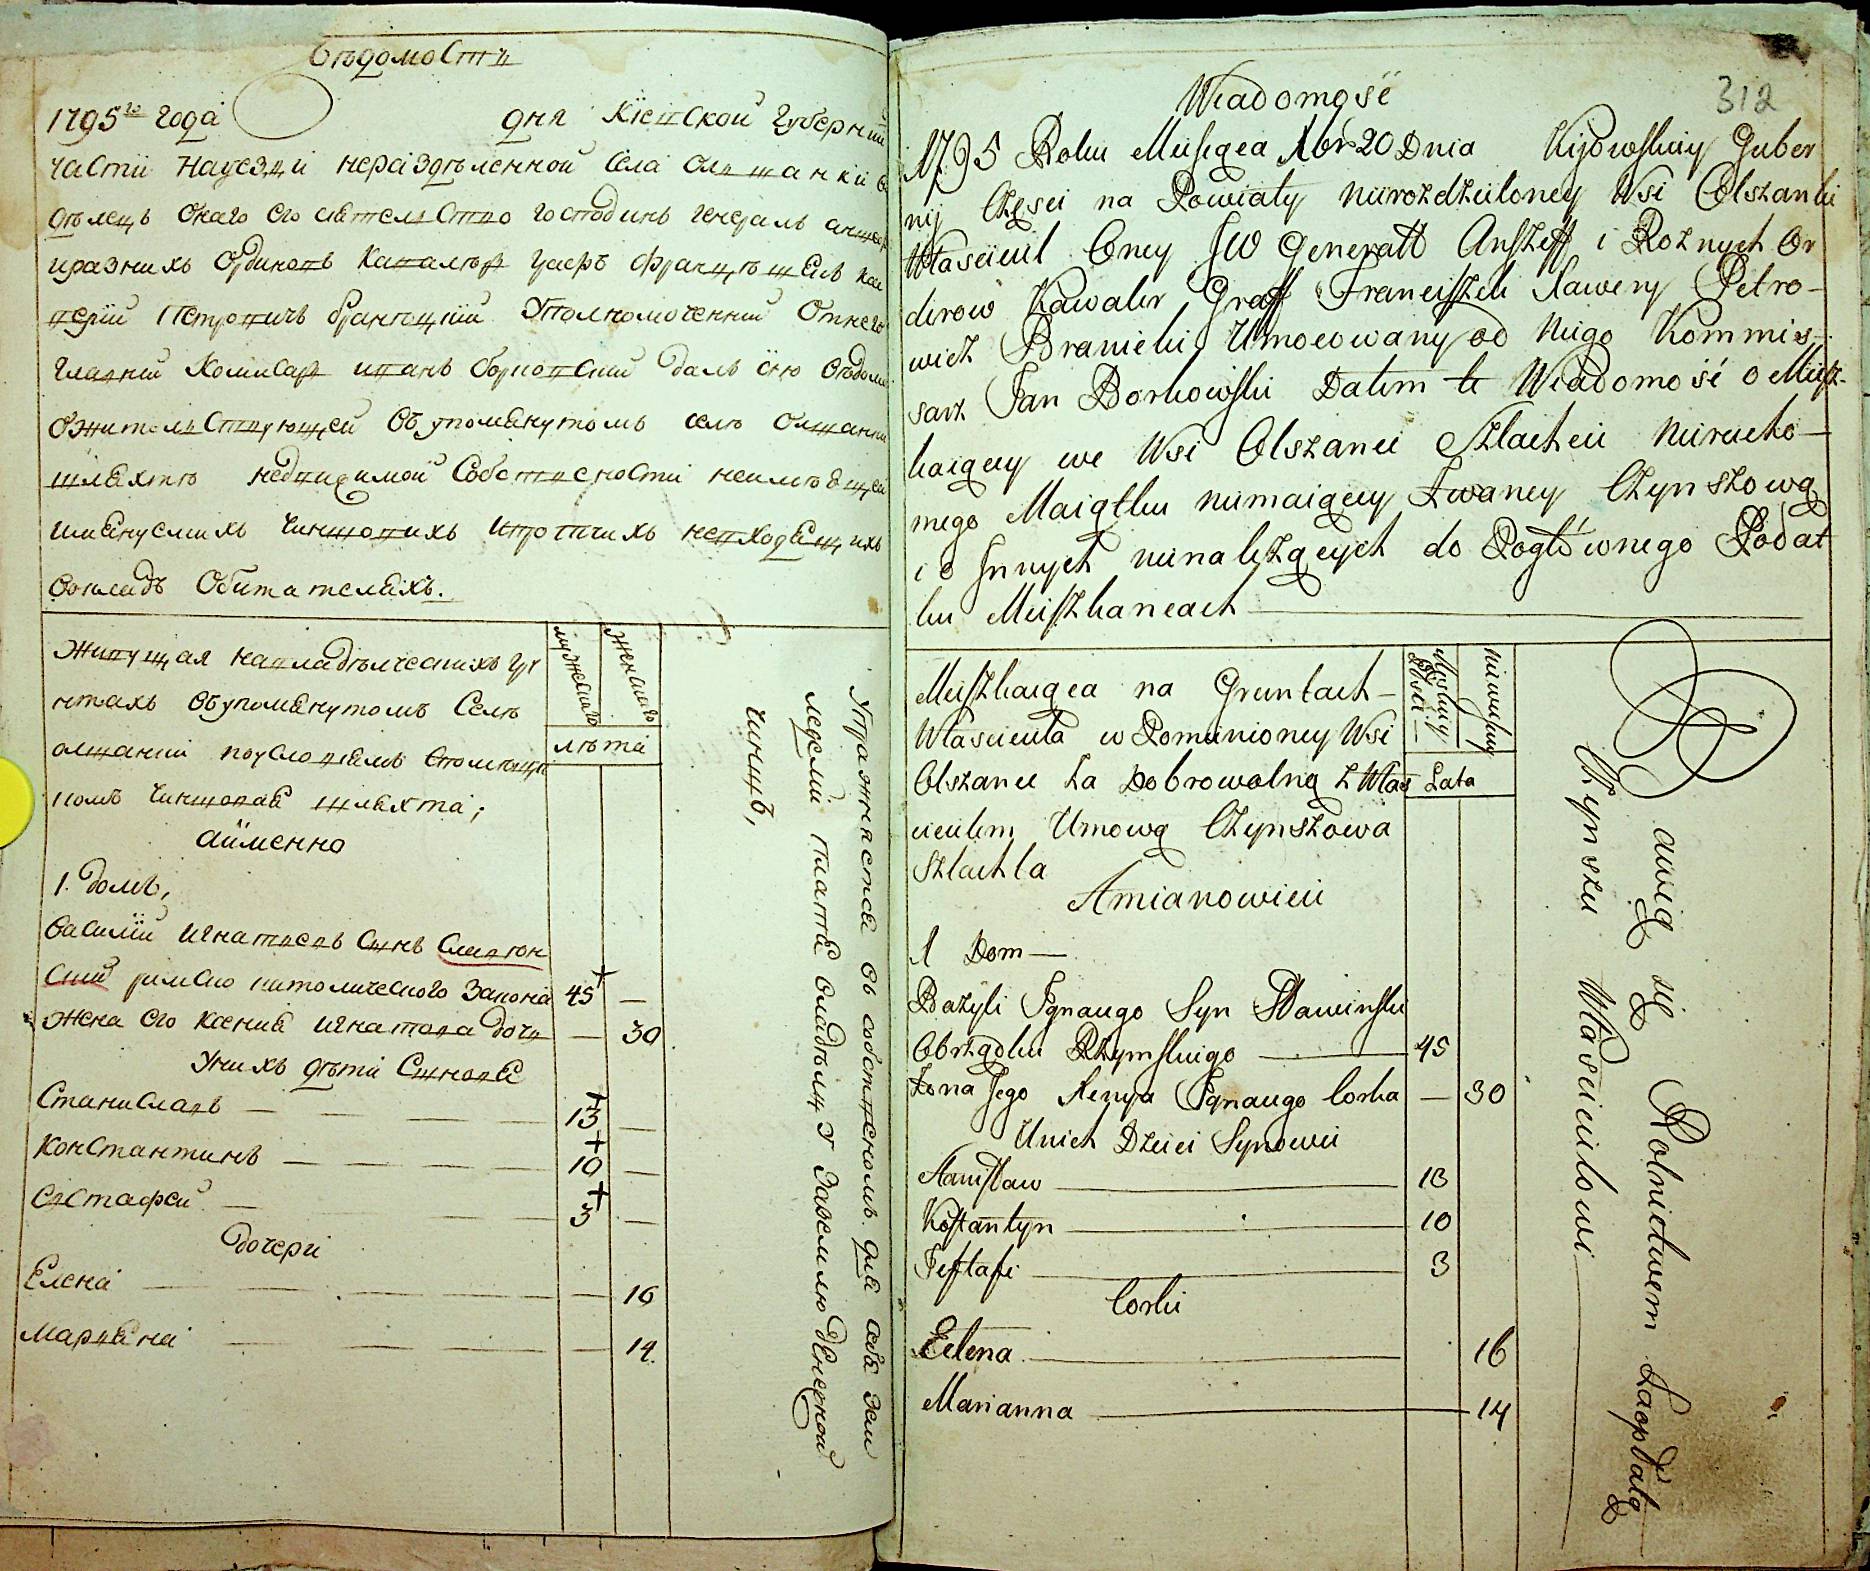 Вѣдомостъ
1795го года дня Кіевской Губерніи
части науезди нераздѣленной села Олшанки в
дѣлецъ онаго его сиятелство господинъ генералъ аншеф
и разнихъ Ординовъ Кавалѣр Графъ Францѣшекъ Ксаверій
Петровичъ Браницкій Уполномоченній Отнего
главній Комисар иванъ борковскій далъ сію вѣдомо
ожителствующей въупомянутомъ селѣ Олшанки
шляхтѣ недвижимой Собственности неимѣющей
имянуемихъ Чиншовихъ ипротчихъ невходящихъ
вокладъ Обитателяхъ.
Живущая навладѣлческихъ гру
нтахъ въупомянутомъ Селѣ
олшанки поусловіямъ
Чиншовая шляхта;
аименно
мужескаго
женскаго
лѣта
1. домъ,
Василій Игнатиевъ Синъ Славин
ский римско католического закона 45 —
жена его Ксения Игнатова дочъ — 30
Унихъ дѣти Синовя
Станиславъ — 13 —
Константинъ — 10 —
Евстафей — 3 —
дочери
Елена — 16
Марцяна — 14.
Упражняется въ собственомъ для себя зем
леделіи платя владѣлцу заземлю денежной
чиншъ,
312
Wiadomość
1795 Roku Miesięca Xbr 20 Dnia Kijowskiey Guber
nij Częsci na Powiaty nierozdzieloney Wsi Olszanki
Własciciel Oney JW Generałł Anszeff i Roznych Or
derow Kawaler Graff Franciszek Xawery Petro-
wicz Branicki Umocowany od Niego Kommis-
sarz Jan Borkowski Datem te Wiadomość o Miesz-
kaiącey we Wsi Olszance Szlachcie Nierucho-
mego Maiątku niemaiącey Zwaney Czynszową
i o Jnnych nienalezących do Pogłównego Podat
ku Mieszkancach
Mieszkaiąca na Gruntach
Własciciela w Pomienioney Wsi
Olszance za Dobrowolną z Włas
cicielem Umową Czynszowa
Szlachta
Amianowicie
Męskiey Płsci
Niewieskiey
Lata
1 Dom —
Bazyli Jgnacego Syn Sławinski
Obrządku Rzymskiego — 45
Zona Jego Xenya Jgnacego Corka — 30
Unich Dzieci Synowie
Stanisław — 13
Kostantyn — 10
Jestafi — 3
Corki
Helena — 16
Marianna — 14
awią się Rolnictwem Zaopłatą
Czynszu Własicielowi —